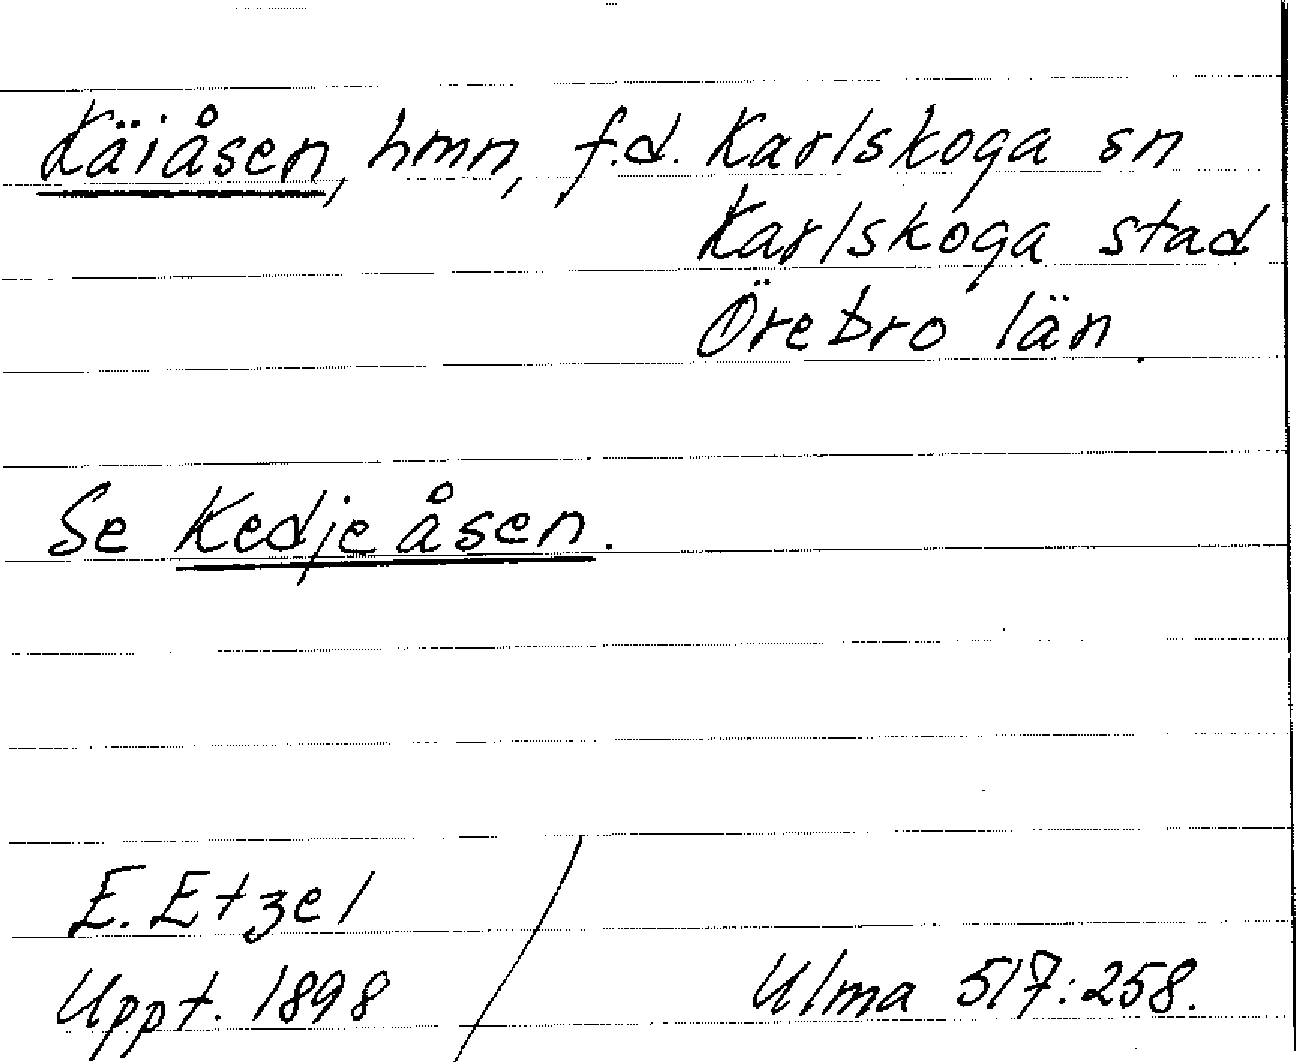 Käiåsen, hmn, f.d. Karlskoga sn
Karlskoga stad
Örebro län
Se Kedjeåsen.
E. Etzel
Uppt. 1898
Ulma 517:258.